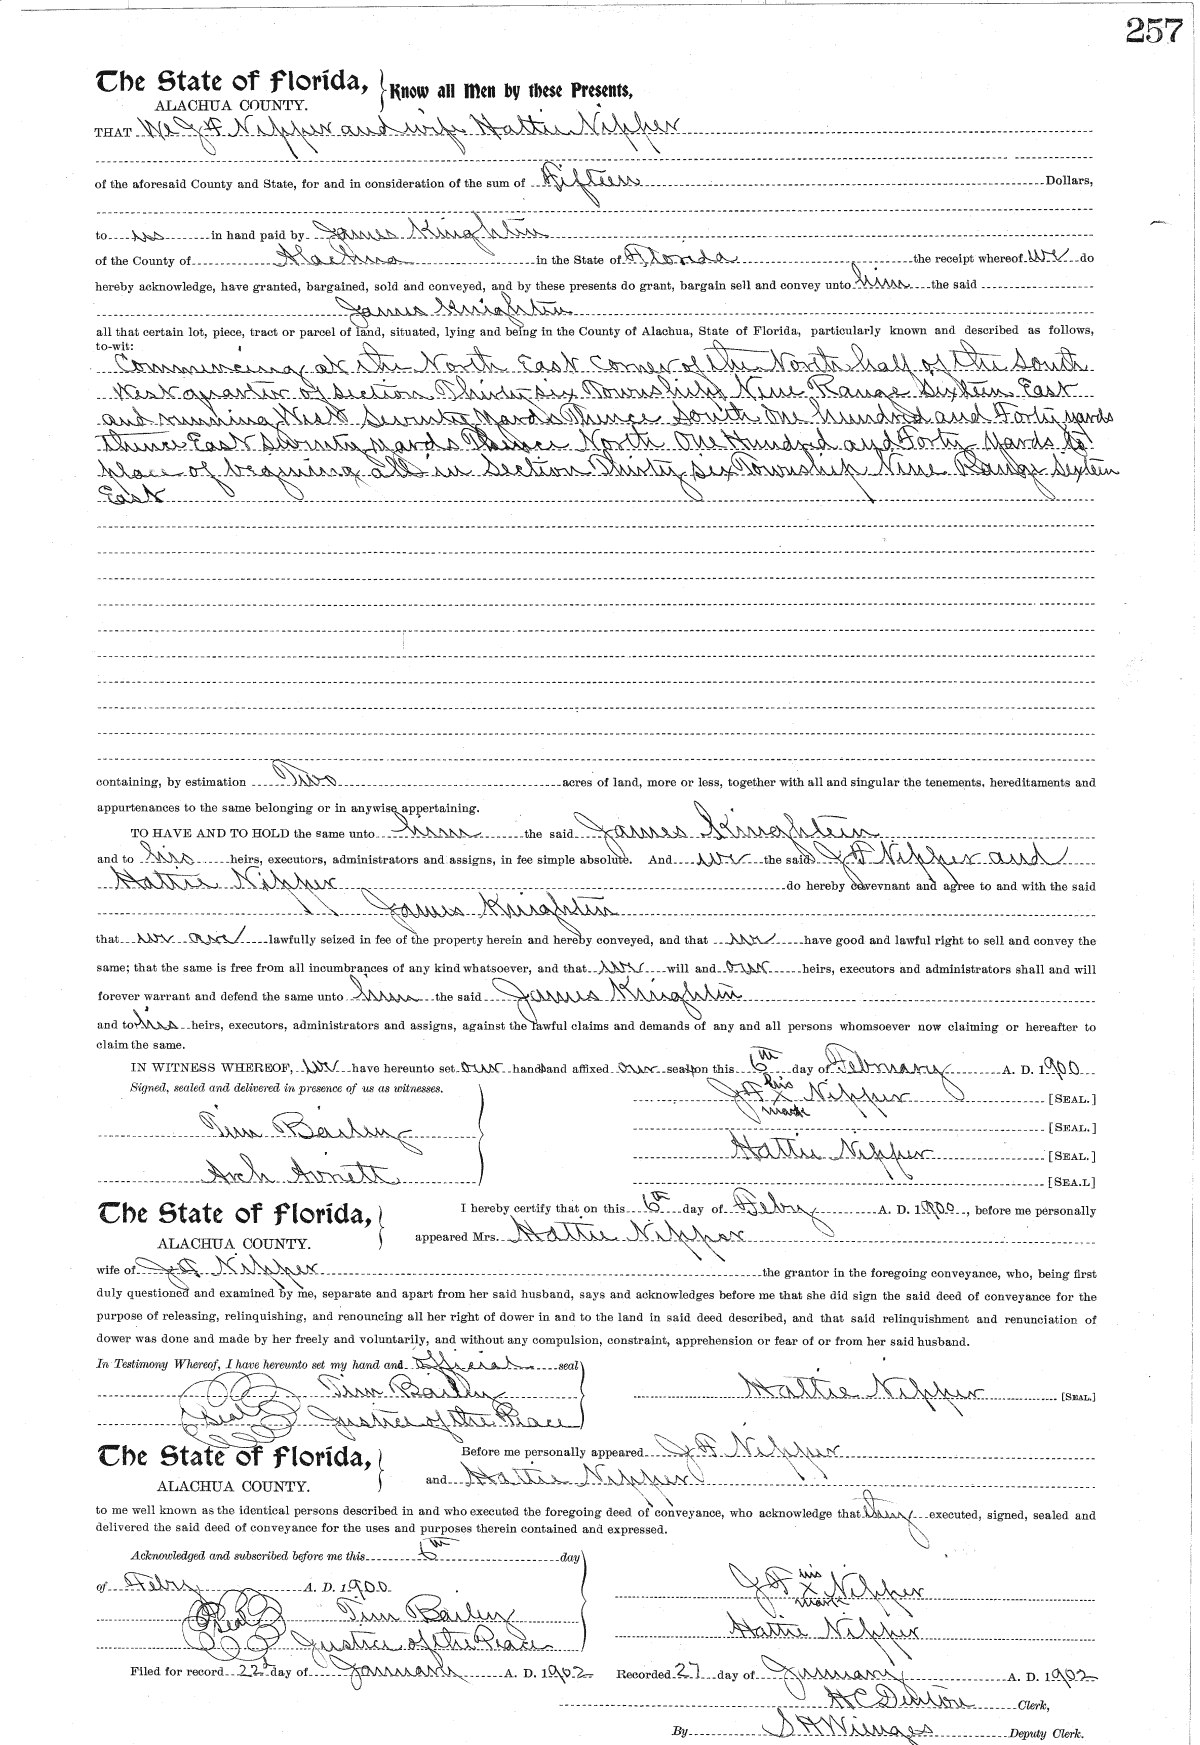 257
The State of Florida, Know all Men by these Presents,
ALACHUA COUNTY.
THAT We J F Nipper and wife Hattie Nipper
of the aforesaid County and State, for and in consideration of the sum of Fifteen Dollars,
to us in hand paid by James Knighten
of the County of Alachua in the State of Florida the receipt whereof we do
hereby acknowledge, have granted, bargained, sold and conveyed, and by these presents do grant, bargain sell and convey unto him the said
James Knighten
all that certain lot, piece, tract or parcel of land, situated, lying and being in the County of Alachua, State of Florida, particularly known and described as follows,
to-wit:
Commencing at the North East Corner of the North half of the South
West quarter of Section Thirty six Township Nine Range Sixteen East
and running West Seventy yards Thence South One hundred and Forty yards
thence East Seventy yards Thence North One Hundred and Forty yards to
place of begining all in Section Thirty six Township Nine Range Sixteen
East
containing, by estimation Two acres of land, more or less, together with all and singular the tenements, hereditaments and
appurtenances to the same belonging or in anywise appertaining.
TO HAVE AND TO HOLD the same unto him the said James Knighten
and to his heirs, executors, administrators and assigns, in fee simple absolute. And we the said J F Nipper and
Hattie Nipper do hereby covevnant and agree to and with the said
James Knighten
that we are lawfully seized in fee of the property herein and hereby conveyed, and that we have good and lawful right to sell and convey the
same; that the same is free from all incumbrances of any kind whatsoever, and that we will and our heirs, executors and administrators shall and will
forever warrant and defend the same unto him the said James Knighten
and to his heirs, executors, administrators and assigns, against the lawful claims and demands of any and all persons whomsoever now claiming or hereafter to
claim the same.
IN WITNESS WHEREOF, we have hereunto set our hand and affixed our seal upon this 6th day of February A. D. 1900
Signed, sealed and delivered in presence of us as witnesses.
J F his x mark Nipper [SEAL.]
Tim Bailey [SEAL.]
Hattie Nipper [SEAL.]
Arch Avnett [SEA.L]
The State of Florida, I hereby certify that on this 6th day of Feby A. D. 1900, before me personally
ALACHUA COUNTY. appeared Mrs. Hattie Nipper
wife of J F Nipper the grantor in the foregoing conveyance, who, being first
duly questioned and examined by me, separate and apart from her said husband, says and acknowledges before me that she did sign the said deed of conveyance for the
purpose of releasing, relinquishing, and renouncing all her right of dower in and to the land in said deed described, and that said relinquishment and renunciation of
dower was done and made by her freely and voluntarily, and without any compulsion, constraint, apprehension or fear of or from her said husband.
In Testimony Whereof, I have hereunto set my hand and official seal
Tim Bailey Hattie Nipper [SEAL.]
Seal Justice of the Peace
The State of Florida, Before me personally appeared J F Nipper
ALACHUA COUNTY. and Hattie Nipper
to me well known as the identical persons described in and who executed the foregoing deed of conveyance, who acknowledge that they executed, signed, sealed and
delivered the said deed of conveyance for the uses and purposes therein contained and expressed.
Acknowledged and subscribed before me this 6th day
of Feby A. D. 1900 J F his x mark Nipper
Seal Tim Bailey Hattie Nipper
Justice of the Peace
Filed for record 22d day of January A. D. 1902 Recorded 27 day of January A. D. 1902
H C Denton Clerk,
By S H Wienges Deputy Clerk.